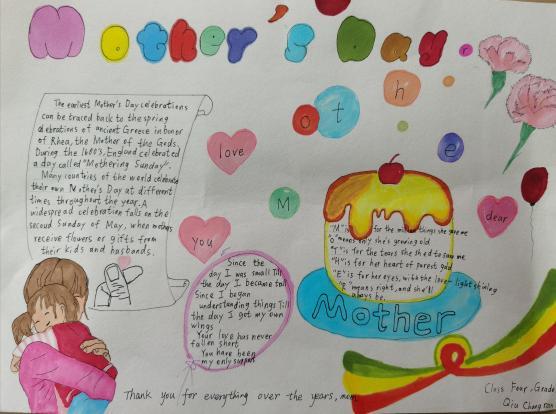 Mother's Day.
The earliest Mother's Day celebrations
can be traced back to the spring
celebrations of ancient Greece in honor
of Rhea, the Mother of the Gods.
During the 1600's, England celebrated
a day called "Mothering Sunday".
Many countries of the world celebrate
their own Mother's Day at different
times throughout the year. A
widespread celebration falls on the
second Sunday of May, when mothers
receive flowers or gifts from
their kids and husbands.
love
you
M
o
t
h
e
r
dear
Since the
day I was small Till
the day I became tall
Since I began
understanding things Till
the day I got my own
wings
Your love has never
fallen short
You have been
my only support
"M" is for the million things she gave me
"O" means only she's growing old
"T" is for the tears she shed to save me
"H" is for her heart of purest gold
"E" is for her eyes, with the love-light shining
"R" means right, and she'll
always be.
Mother
Thank you for everything over the years, mom
Class Four, Grade
Qiu Chang